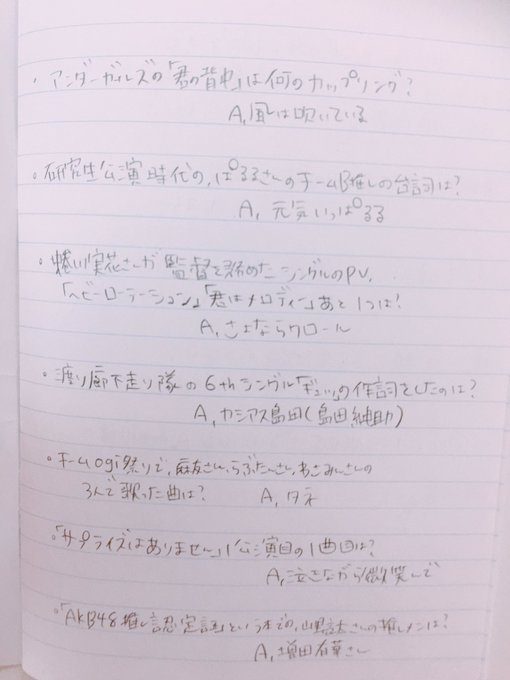 。アンダーガールズの「君の背中」は何のカップリング?
A, 風は吹いている
。研究生公演時代の、ぱるるさんのチームB推しの台詞は?
A, 元気いっぱるる
。蜷川実花さんが監督を務めたシングルのPV,
「ヘビーローテーション」「君はメロディー」あと1つは?
A, さよならクロール
。渡り廊下走り隊の6thシングル「ギュッ」の作詞をしたのは?
A, カシアス島田(島田紳助)
。チームogi祭りで、麻友さん、らぶたんさん、あさみんさんの
3人で歌った曲は? A, タネ
。「サプライズはありません」1公演目の1曲目は?
A, 泣きながら微笑んで
。「AKB48推し認定証」という本での、さんの推しメンは?
A, 増田有華さん